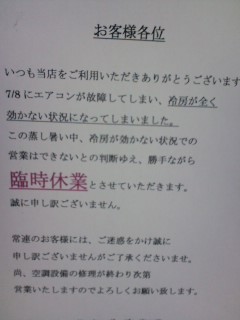 お客様各位
いつも当店をご利用いただきありがとうございます
7/8にエアコンが故障してしまい、冷房が全く
効かない状況になってしまいました。
この蒸し暑い中、冷房が効かない状況での
営業はできないとの判断ゆえ、勝手ながら
臨時休業とさせていただきます。
誠に申し訳ございません。
常連のお客様には、ご迷惑をかけ誠に
申し訳ございませんがご了承くださいませ。
尚、空調設備の修理が終わり次第
営業いたしますのでよろしくお願い致します。